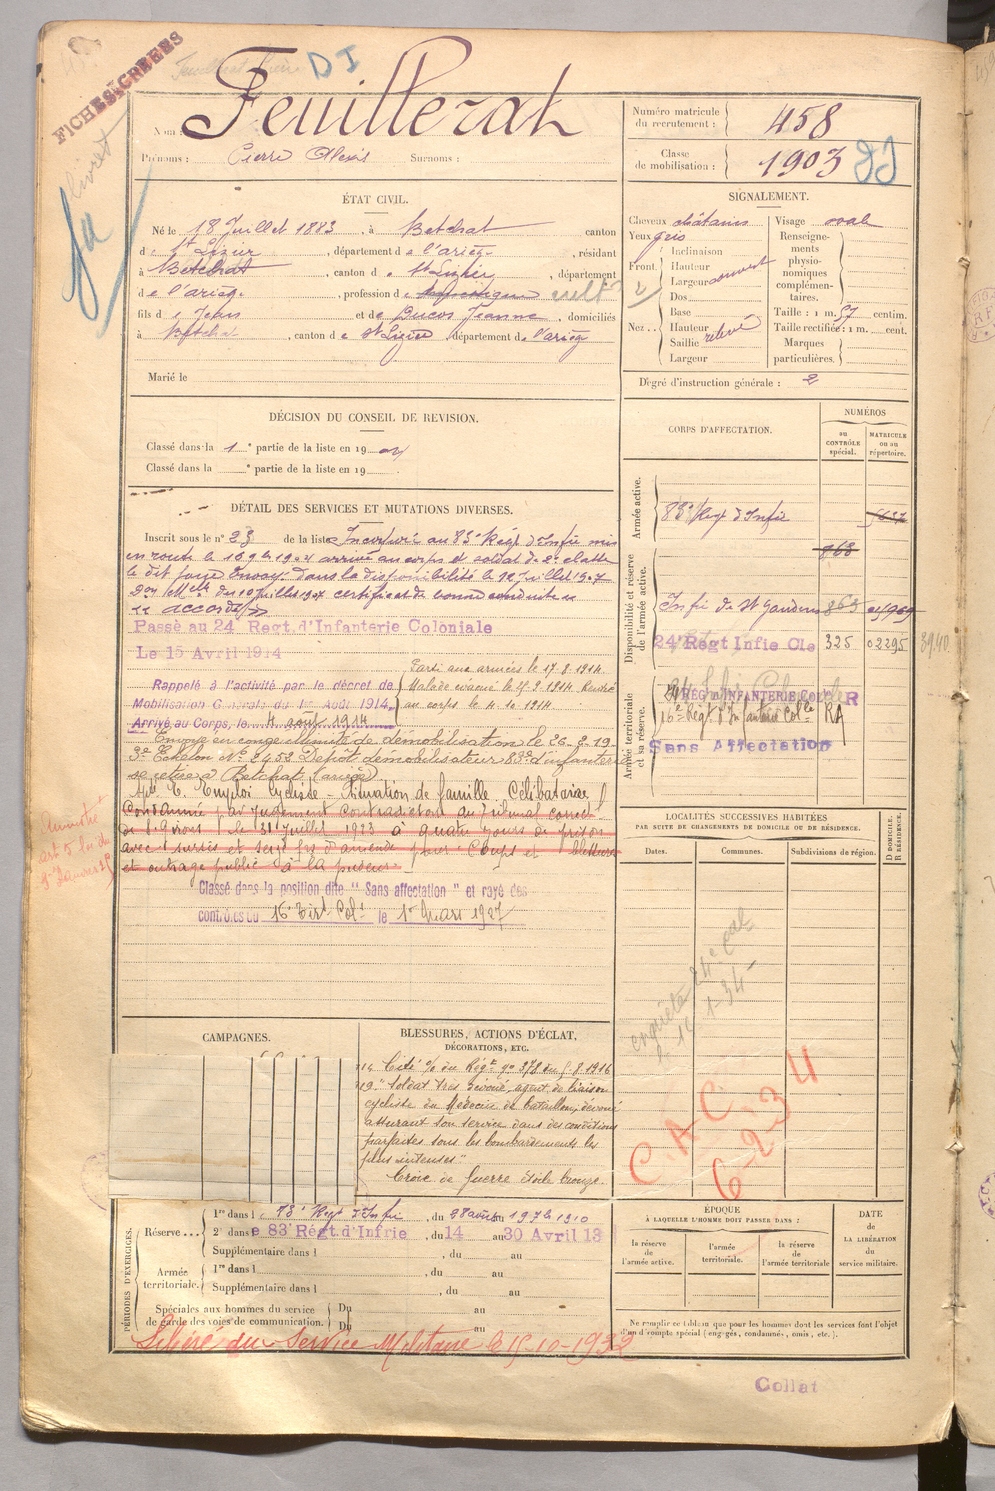 FICHES CRÉÉES
DI
Nom : Feuillerat
Prénoms : Pierre Alexis Surnoms :
Numéro matricule du recrutement : 458
Classe de mobilisation : 1903
ÉTAT CIVIL.
Né le 18 Juillet 1883, à Betchat canton
d St Lizier, département d e l'ariège, résidant
à Betchat, canton d e St Lizier, département
d e l'ariège, profession d e cult
fils d e Jean et de Bucos Jeanne, domiciliés
à Betchat, canton d e St Lizier, département de l'ariège
Marié le
SIGNALEMENT.
Cheveux châtains
Yeux gris
Front. Inclinaison
Hauteur
Largeur
Nez.. Dos
Base
Hauteur
Saillie relevé
Largeur
Visage oval
Renseignements physionomiques complémentaires.
Taille : 1 m. 57 centim.
Taille rectifiée : 1 m. cent.
Marques particulières.
Degré d'instruction générale : 2
DÉCISION DU CONSEIL DE REVISION.
Classé dans la 1e partie de la liste en 1904
Classé dans la e partie de la liste en 19
DÉTAIL DES SERVICES ET MUTATIONS DIVERSES.
Inscrit sous le n° 23 de la liste Incorporé au 83e Rég d'Infie mis
en route le 16 9bre 1904 arrivé au corps et soldat de 2e classe
le dit jour Envoy. dans la disponibilité le 12 Juillet 1907
certificat de bonne conduite
accordé
Passé au 24 Regt. d'Infanterie Coloniale
Le 15 Avril 1914
Rappelé à l'activité par le décret de
Mobilisation Générale du 1er Août 1914
Arrivé au Corps, le 4 août 1914
Parti aux armées le 17.8.1914.
Malade évacué le 9.1914. Rentré
au corps le 4.10.1914
Envoyé en congé illimité de démobilisation le 26-2-19
3e Echelon N° 2452 Dépôt démobilisateur 83e d'infanterie
se retire à Betchat (ariège)
Emploi Cycliste - Situation de famille Célibataire
Condamné par jugement contradictoire du Tribunal correct
de St Girons le 31 Juillet 1923 à quatre jours de prison
avec sursis et seize frs d'amende pour Coups et blessures
et outrage public à la pudeur
Amnistié
art 5 loi du
Classé dans la position dite "Sans affectation" et rayé des
contrôles du 16e Tirt Colt le 1er Mars 1927
CORPS D'AFFECTATION.
NUMÉROS
au CONTRÔLE spécial.
MATRICULE ou au répertoire.
Armée active.
83e Regt d'Infie
Disponibilité et réserve de l'armée active.
868
Infie de St Gaudens 863
24e Regt Infie Cle 325 02295
Armée territoriale et sa réserve.
RÉGt d'INFANTERIE COLle R
16e Regt d'Infanterie Colle RA
Sans Affectation
LOCALITÉS SUCCESSIVES HABITÉES
PAR SUITE DE CHANGEMENTS DE DOMICILE OU DE RÉSIDENCE.
Dates.
Communes.
Subdivisions de région.
D DOMICILE.
R RÉSIDENCE.
C.A.C.
6-2-34
CAMPAGNES.
BLESSURES, ACTIONS D'ÉCLAT,
DÉCORATIONS, ETC.
Cité % du Régt n° 378 du 5.8.1916
"Soldat très dévoué, agent de liaison
cycliste du Médecin de bataillon, dévoué
assurant son service dans des conditions
parfaites sous les bombardements les
plus intenses".
Croix de Guerre étoile bronze.
PÉRIODES D'EXERCICES.
Réserve... 1re dans l e 83e Regt d'Infie, du 28 août au 19 7bre 1910
2e dans l e 83e Régt. d'Infrie, du 14 au 30 Avril 13
Supplémentaire dans l , du au
Armée territoriale. 1re dans l , du au
Supplémentaire dans l , du au
Spéciales aux hommes du service
de garde des voies de communication. Du au
Du au
ÉPOQUE
À LAQUELLE L'HOMME DOIT PASSER DANS :
la réserve de l'armée active.
l'armée territoriale.
la réserve de l'armée territoriale
DATE de LA LIBÉRATION du service militaire.
Ne remplir ce tableau que pour les hommes dont les services font l'objet
d'un décompte spécial (engagés, condamnés, omis, etc.).
Libéré du Service Militaire le 15-10-1932
Collat